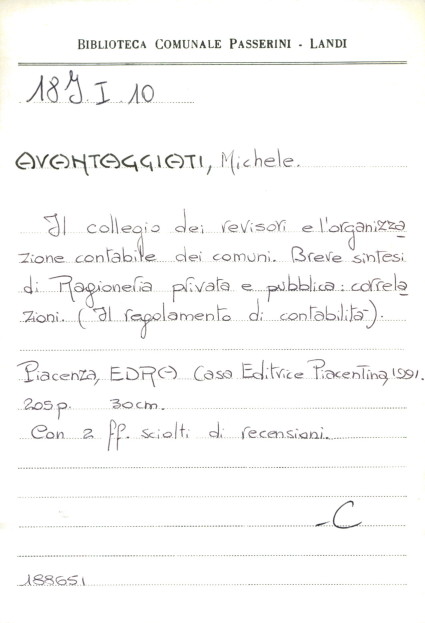 BIBLIOTECA COMUNALE PASSERINI - LANDI
18 I 10
AVANTAGGIATI, Michele.
Il collegio dei revisori e l'organizza
zione contabile dei comuni. Breve sintesi
di Ragioneria privata e pubblica: correla
zioni. (Il regolamento di contabilità).
Piacenza, EDRA Casa Editrice Piacentina, 1991.
205 p. 30 cm.
Con 2 ff. sciolti di recensioni.
-C
188651